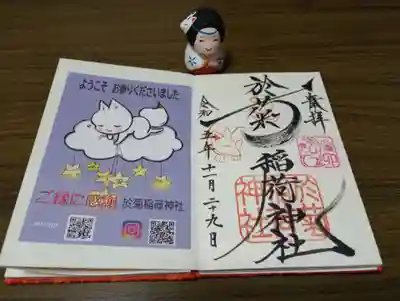 ようこそ お参りくださいました
ご縁に感謝 於菊稲荷神社
奉拝
於菊稲荷神社
令和五年十一月二十九日